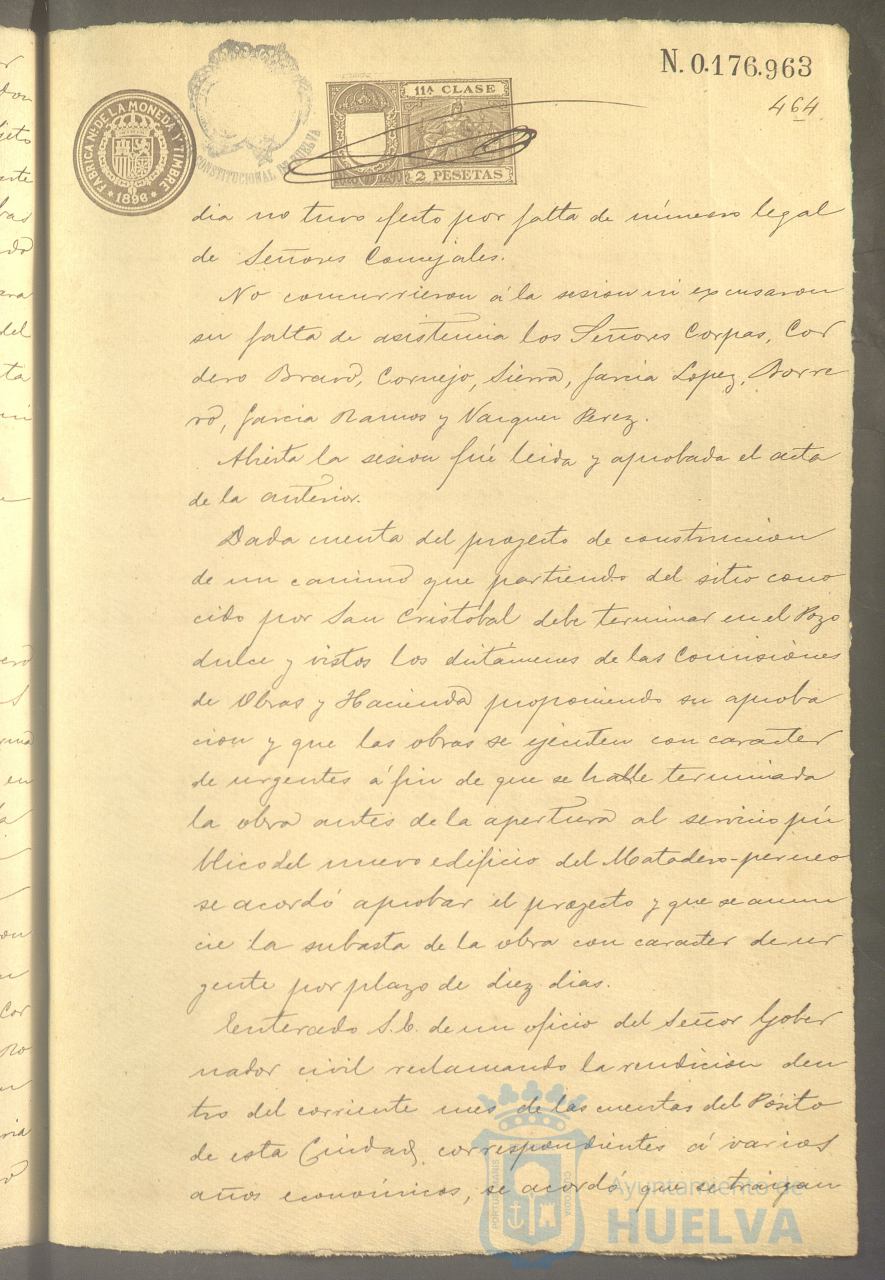 N. 0.176.963
464
FABRICA Nal DE LA MONEDA Y TIMBRE
* 1896 *
CONSTITUCIONAL DE HUELVA
11ª CLASE
2 PESETAS
dia no tuvo efecto por falta de número legal
de Señores Concejales.
No concurrieron á la sesion ni excusaron
su falta de asistencia los Señores Corpas, Cor
dero Bravo, Cornejo, Sierra, Garcia Lopez, Borre
ro, Garcia Ramos y Vazquez Perez.
Abierta la sesion fué leida y aprobada el acta
de la anterior.
Dada cuenta del proyecto de construccion
de un camino que partiendo del sitio cono
cido por San Cristobal debe terminar en el Pozo
dulce y vistos los dictámenes de las Comisiones
de Obras y Hacienda proponiendo su aproba
cion y que las obras se ejecuten con caracter
de urgentes á fin de que se halle terminada
la obra antes de la apertura al servicio pú
blico del nuevo edificio del Matadero-perneo
se acordó aprobar el proyecto y que se anun
cie la subasta de la obra con caracter de ur
gente por plazo de diez dias.
Enterado S.E. de un oficio del Señor Gober
nador civil reclamando la rendicion den
tro del corriente mes de las cuentas del Pósito
de esta Ciudad, correspondientes á varios
años económicos, se acordó que se traigan
Ayuntamiento de
HUELVA